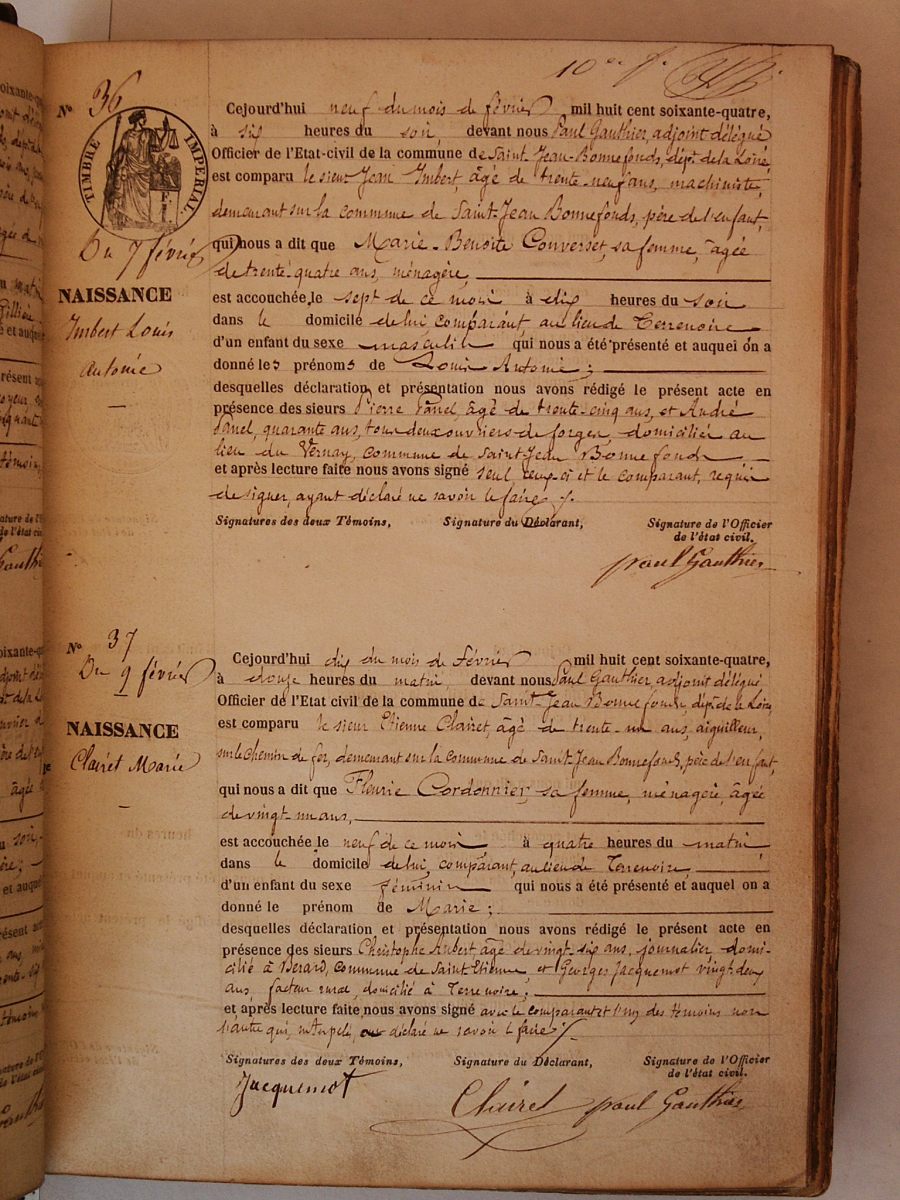 10e f.
N° 36
TIMBRE IMPERIAL
Du 7 février
NAISSANCE
Imbert Louis
Antoine
Cejourd'hui neuf du mois de février mil huit cent soixante-quatre,
à six heures du soir, devant nous Paul Gauthier, adjoint délégué
Officier de l'Etat-civil de la commune de Saint-Jean-Bonnefonds, dépt. de la Loire
est comparu le sieur Jean Imbert, âgé de trente-neuf ans, machiniste,
demeurant sur la commune de Saint-Jean Bonnefonds, père de l'enfant,
qui nous a dit que Marie-Benoite Converset, sa femme, âgée
de trente-quatre ans, ménagère,
est accouchée, le sept de ce mois à dix heures du soir
dans le domicile de lui, comparant, au lieu de Terrenoire
d'un enfant du sexe masculin qui nous a été présenté et auquel on a
donné les prénoms de Louis Antoine;
desquelles déclaration et présentation nous avons rédigé le présent acte en
présence des sieurs Pierre Panel, âgé de trente-cinq ans, et André
Panel, quarante ans, tous deux ouvriers de forges, domiciliés au
lieu du Vernay, commune de Saint-Jean Bonnefonds
et après lecture faite nous avons signé seul, ceux-ci et le comparant, requis
de signer, ayant déclaré ne savoir le faire /.
Signatures des deux Témoins, Signature du Déclarant, Signature de l'Officier
de l'état civil.
paul Gauthier
N° 37
Du 9 février
NAISSANCE
Clairet Marie
Cejourd'hui dix du mois de février mil huit cent soixante-quatre,
à douze heures du matin, devant nous Paul Gauthier, adjoint délégué
Officier de l'Etat civil de la commune de Saint-Jean Bonnefonds, dépt. de la Loire
est comparu le sieur Etienne Clairet, âgé de trente-un ans, aiguilleur,
sur le chemin de fer, demeurant sur la commune de Saint-Jean Bonnefonds, père de l'enfant,
qui nous a dit que Fleurie Cordonnier, sa femme, ménagère, âgée
de vingt-un ans,
est accouchée le neuf de ce mois à quatre heures du matin
dans le domicile de lui, comparant, au lieu de Terrenoire,
d'un enfant du sexe féminin qui nous a été présenté et auquel on a
donné le prénom de Marie;
desquelles déclaration et présentation nous avons rédigé le présent acte en
présence des sieurs Christophe Aubert, âgé de vingt-six ans, journalier, domi-
cilié à Bérard, commune de Saint Etienne, et Georges Jacquemot vingt-deux
ans, facteur rural, domicilié à Terrenoire;
et après lecture faite, nous avons signé avec le comparant et l'un des témoins non
l'autre qui, interpelé, a déclaré ne savoir le faire /.
Signatures des deux Témoins, Signature du Déclarant, Signature de l'Officier
de l'état civil.
Jacquemot Clairet paul Gauthier